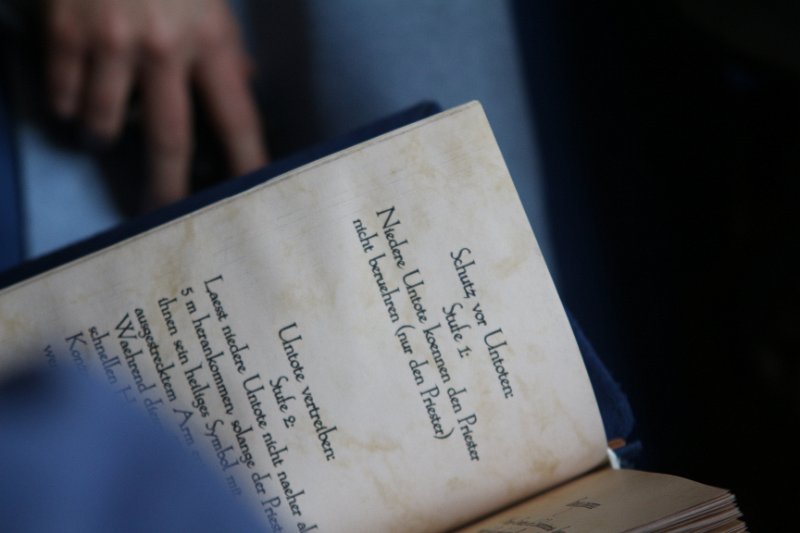 Schutz vor Untoten:
Stufe 1:
Niedere Untote koennen den Priester
nicht beruehren (nur den Priester)
Untote vertreiben:
Stufe 2:
Laesst niedere Untote nicht naeher al
5 m herankommen, solange der Priest
ihnen sein heiliges Symbol mit
ausgestrecktem Arm
Waehrend
schnellen